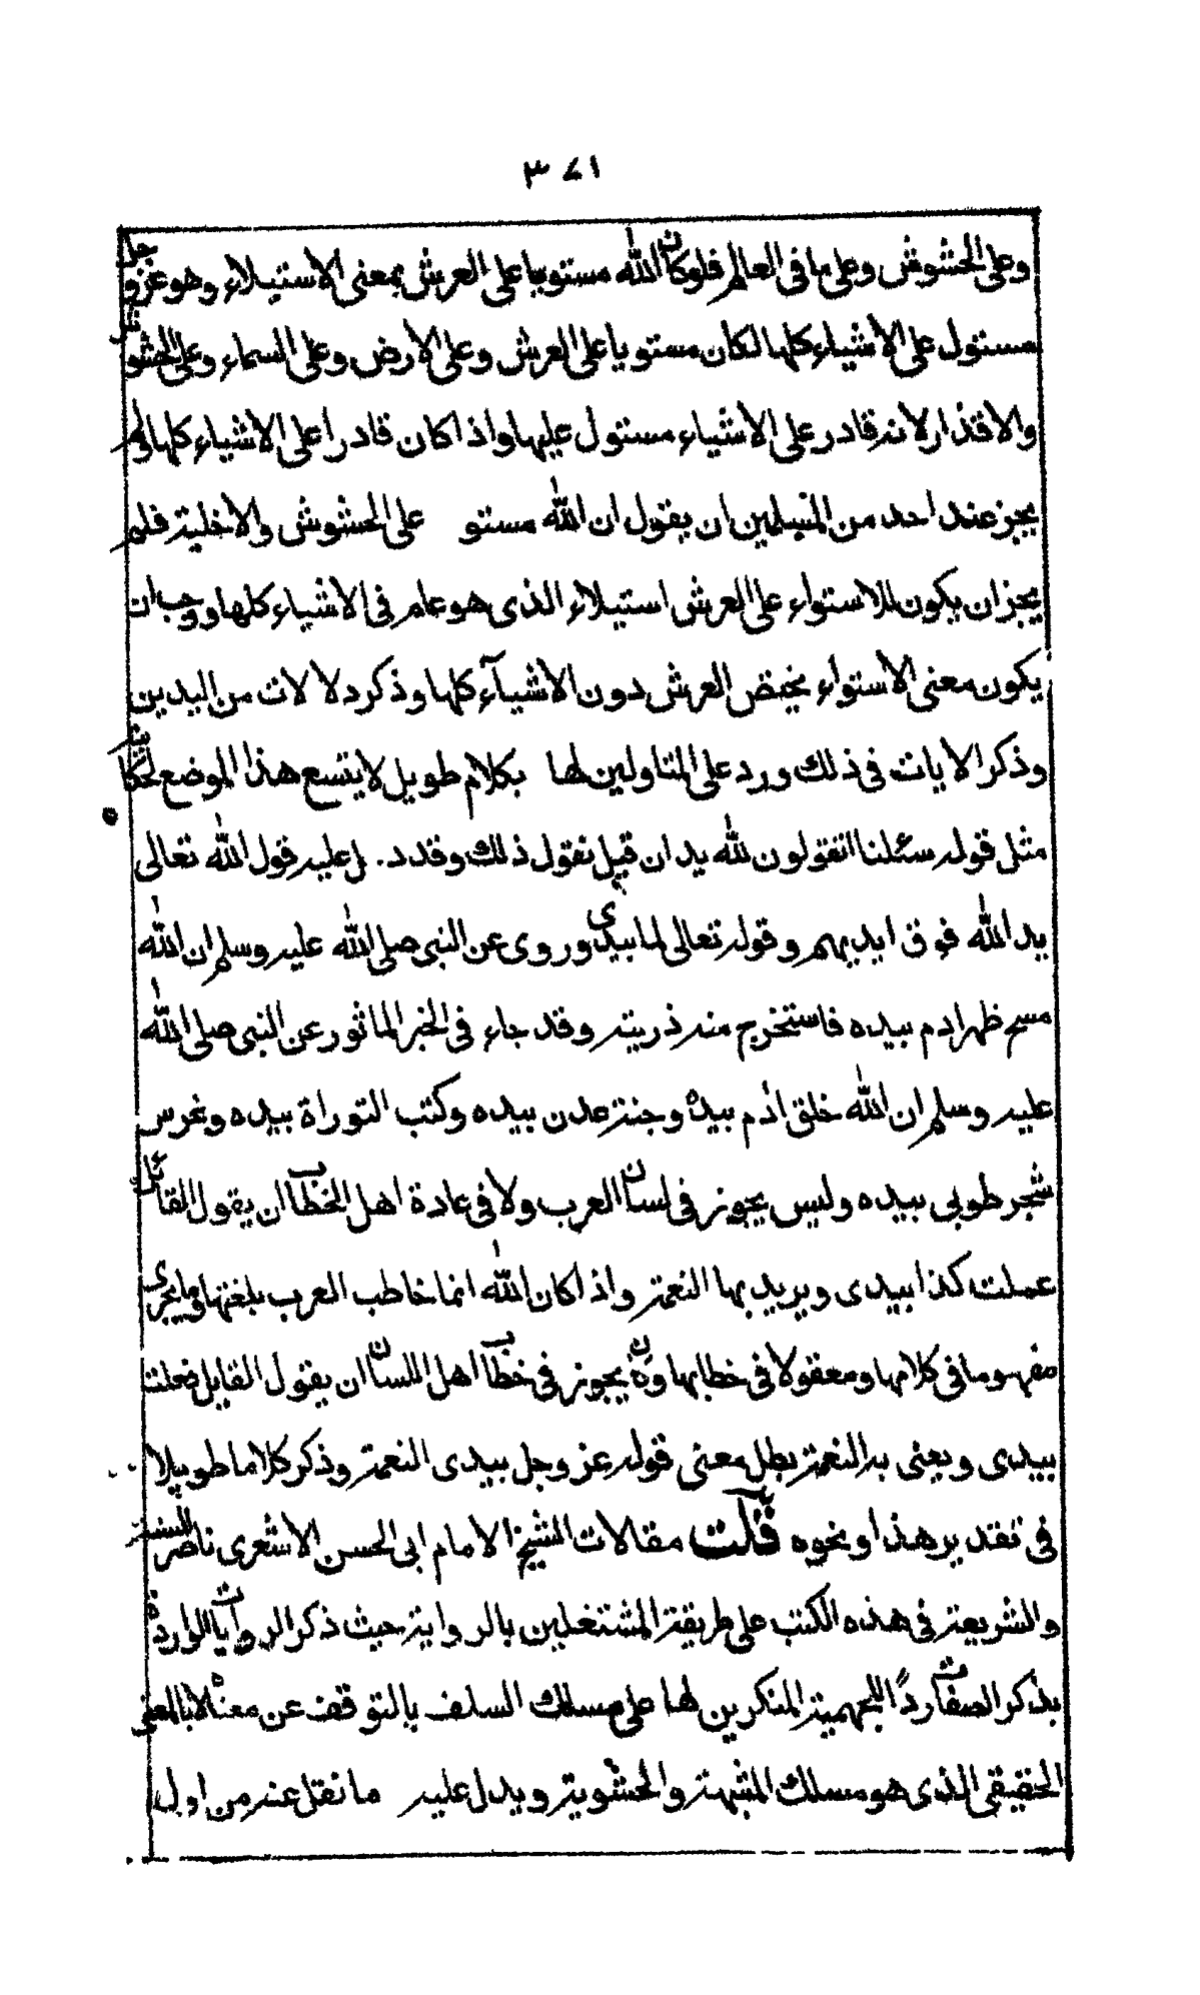 ٣٧١
وعلى الحشوش وعلى ما فى العالم فلو كان الله مستويا على العرش بمعنى الاستيلاء وهو عز وجل
مستول على الاشياء كلها لكان مستويا على العرش وعلى الارض وعلى السماء وعلى الحشوش
والاقذار لانه قادر على الاشياء مستول عليها واذا كان قادرا على الاشياء كلها لم
يجز عند احد من المسلمين ان يقول ان الله مستو على الحشوش والاخلية فلم
يجز ان يكون للاستواء على العرش استيلاء الذى هو عام فى الاشياء كلها ووجب ان
يكون معنى الاستواء يختص العرش دون الاشيآء كلها وذكر دلالات من اليدين
وذكر الايات فى ذلك ورد على المتاولين لها بكلام طويل لا يتسع هذا الموضع لحكايته
مثل قوله سئلنا اتقولون لله يد ان قيل نقول ذلك وقد د.ل عليه قول الله تعالى
يد الله فوق ايديهم وقوله تعالى لما بيدى وروى عن النبى صلى الله عليه وسلم ان الله
مسح ظهر ادم بيده فاستخرج منه ذريته وقد جاء فى الخبر الماثور عن النبى صلى الله
عليه وسلم ان الله خلق ادم بيده وجنة عدن بيده وكتب التوراة بيده وغرس
شجر طوبى بيده وليس يجوز فى لسان العرب ولا فى عادة اهل الخطاب ان يقول القائل
عملت كذا بيدى ويريد بها النعمة واذا كان الله انما خاطب العرب بلغتها وما يجرى
مفهوما فى كلامها ومعقولا فى خطابها وكان يجوز فى خطاب اهل اللسان ان يقول القايل فعلت
بيدى ويعنى به النعمة بطل معنى قوله عز وجل بيدى النعمة وذكر كلاما طويلا
فى تقدير هذا او نحوه قلت مقالات الشيخ الامام ابى الحسن الاشعرى ناصر السنة
والشريعة فى هذه الكتب على طريقة المشتغلين بالرواية حيث ذكر الروايات الواردة
بذكر الصفات ردًا للجهمية المنكرين لها على مسلك السلف بالتوقف عن معناه لا بالمعنى
الحقيقى الذى هو مسلك المشبهة والحشوية ويدل عليه ما نقل عنه من اول